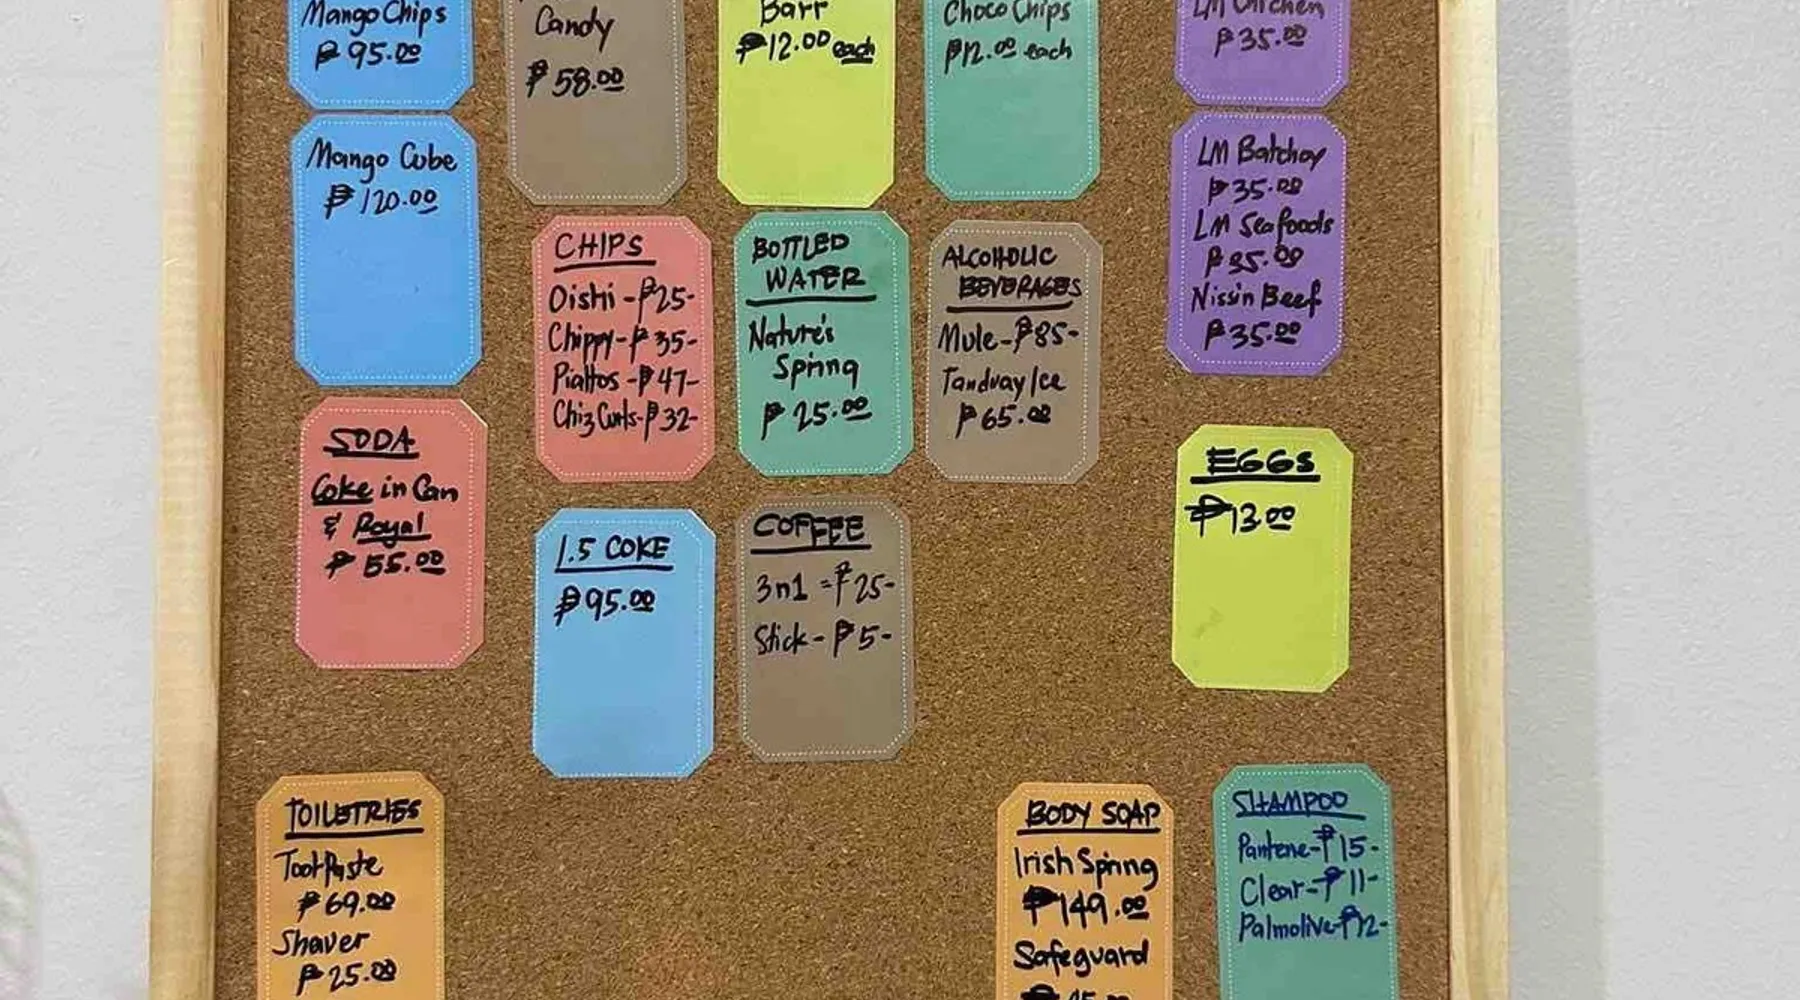 Mango Chips
₱ 95.00
Candy
₱ 58.00
Barr
₱12.00 each
Choco Chips
₱12.00 each
LM Chicken
₱ 35.00
Mango Cube
₱ 120.00
LM Batchoy
₱ 35.00
LM Seafoods
₱ 35.00
Nissin Beef
₱ 35.00
CHIPS
Oishi - ₱25-
Chippy - ₱ 35-
Piattos - ₱ 47-
Chiz Curls - ₱ 32-
BOTTLED
WATER
Nature's
Spring
₱ 25.00
ALCOHOLIC
BEVERAGES
Mule - ₱85-
Tanduay Ice
₱ 65.00
SODA
Coke in Can
& Royal
₱ 55.00
1.5 COKE
₱95.00
COFFEE
3n1 = ₱ 25-
Stick - ₱ 5-
EGGS
₱13.00
TOILETRIES
ToothPaste
₱ 69.00
Shaver
₱ 25.00
BODY SOAP
Irish Spring
₱149.00
Safeguard
SHAMPOO
Pantene - ₱15-
Clear - ₱11-
Palmolive - ₱12-